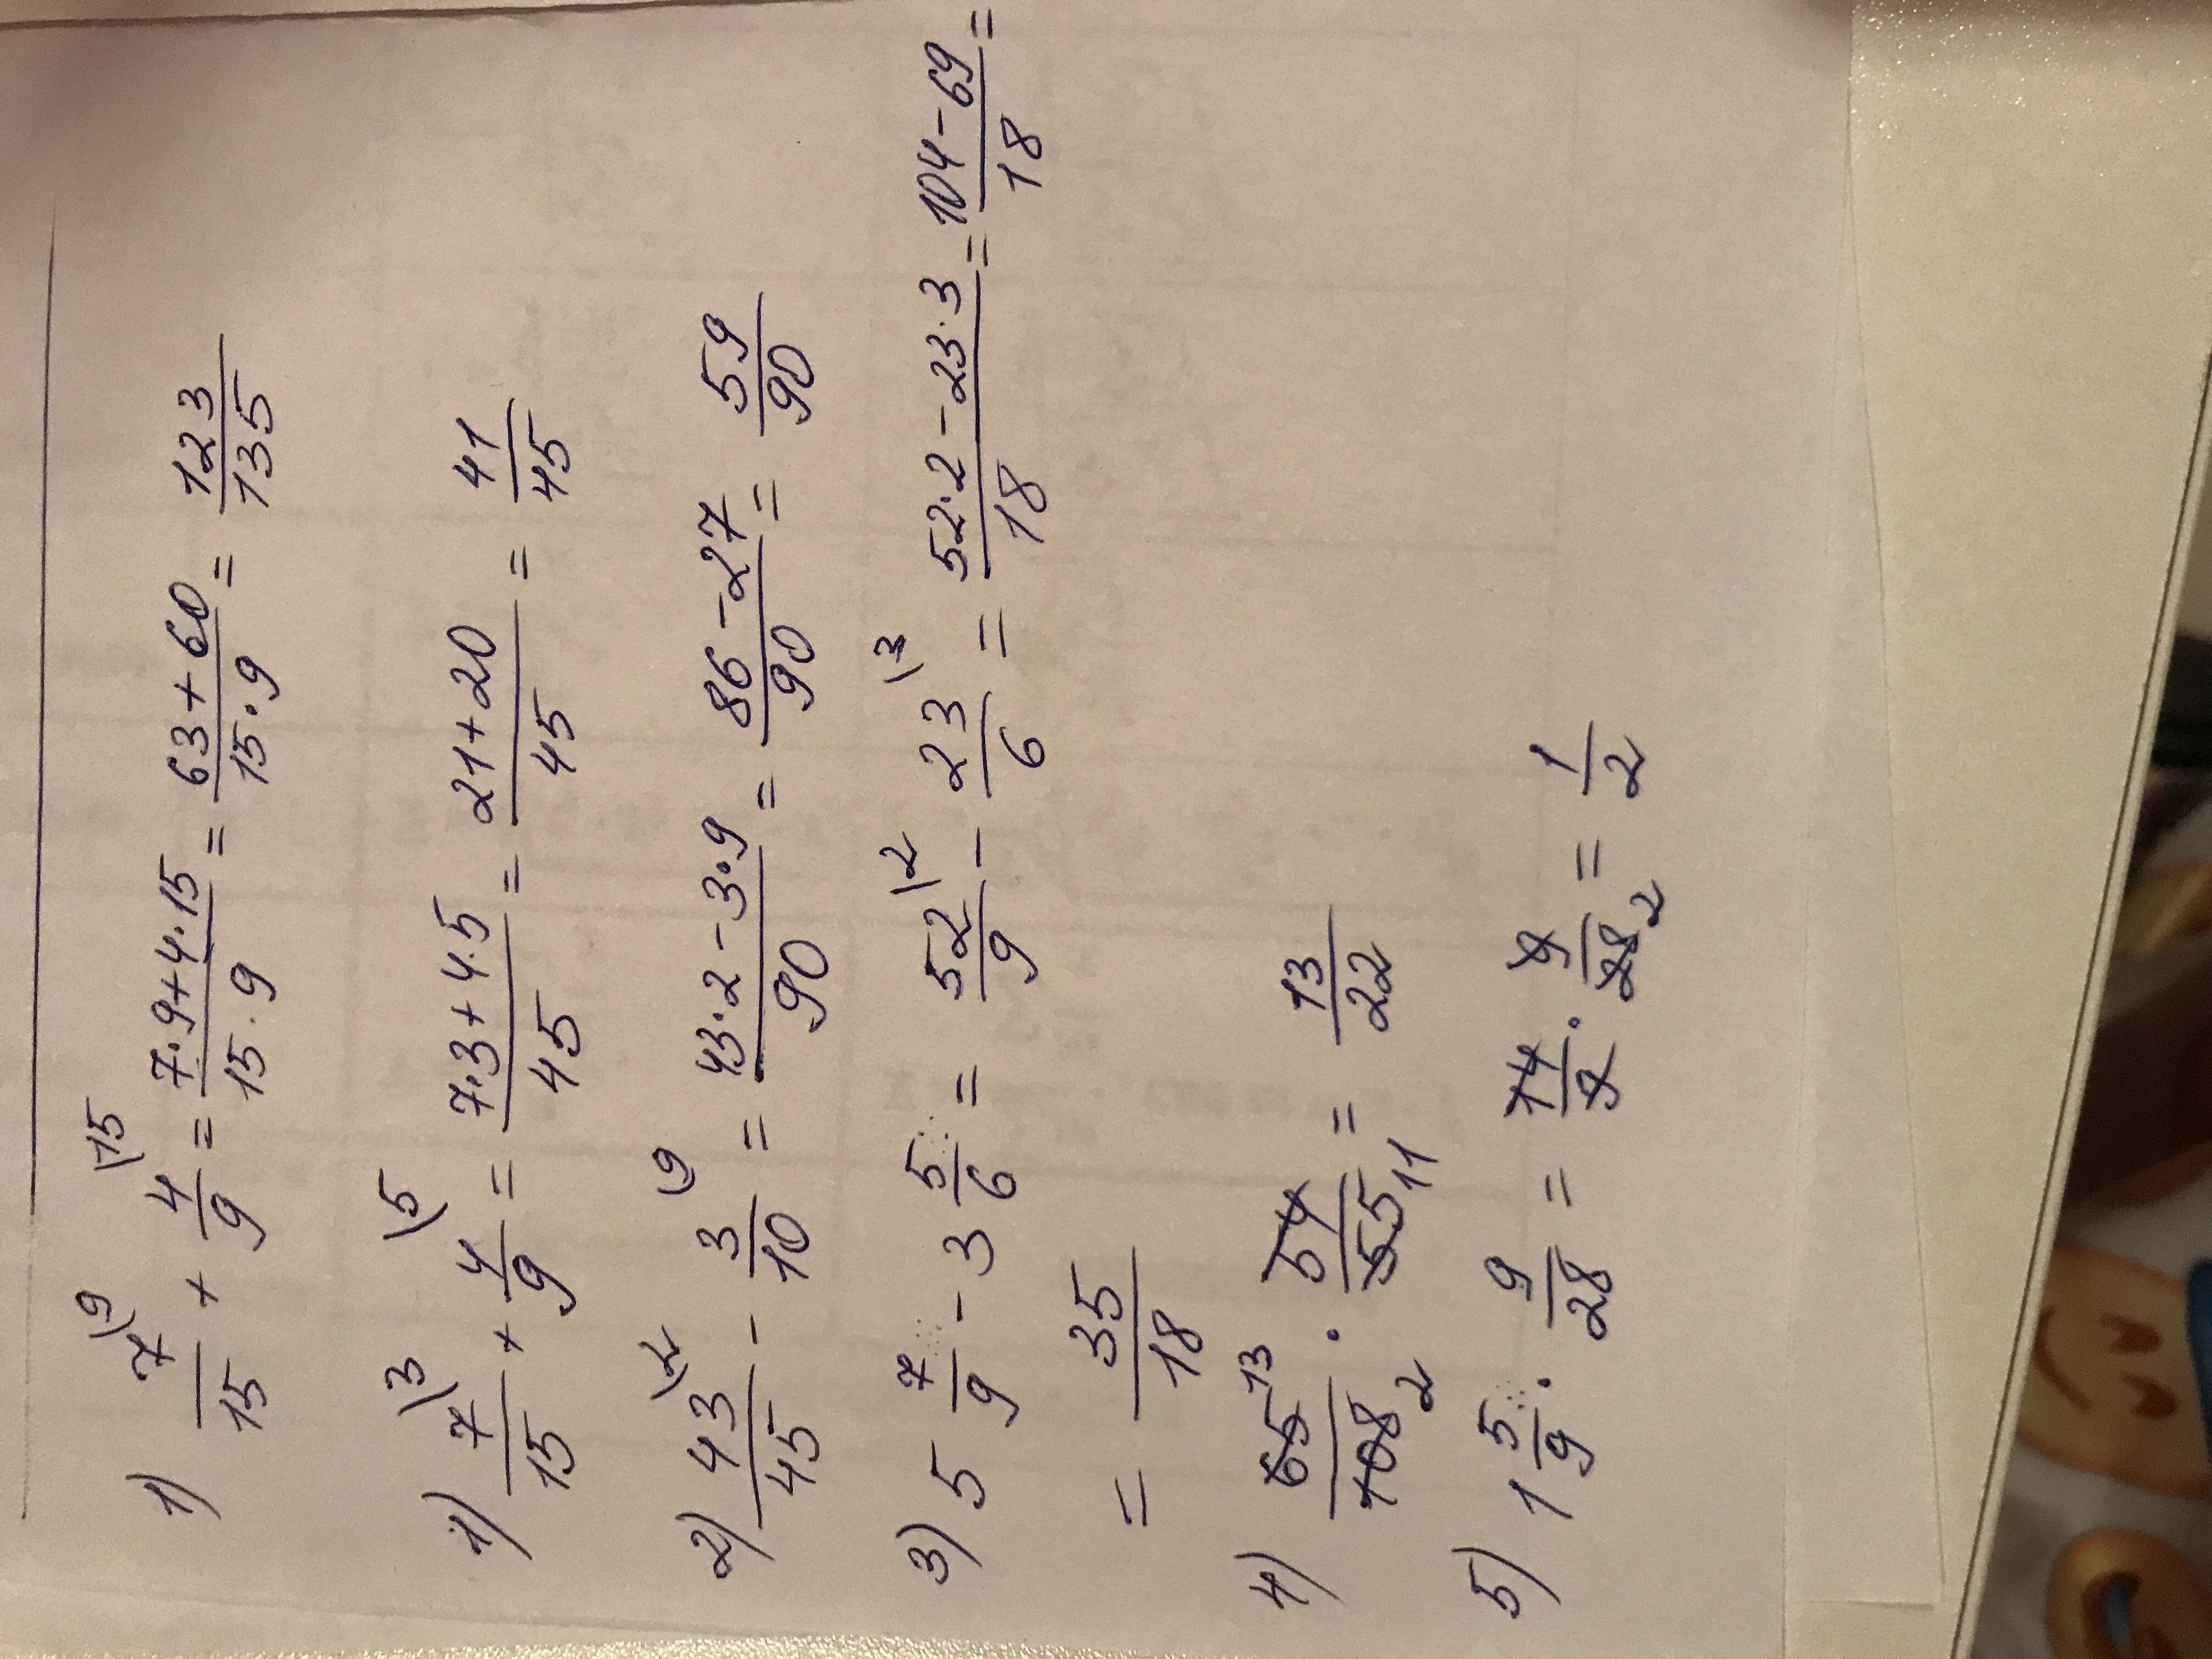 1) 7/15 \9 + 4/9 \15 = 7·9+4·15/15·9 = 63+60/15·9 = 123/135
1) 7/15 \3 + 4/9 \5 = 7·3+4·5/45 = 21+20/45 = 41/45
2) 43/45 \2 - 3/10 \9 = 43·2-3·9/90 = 86-27/90 = 59/90
3) 5 7/9 - 3 5/6 = 52/9 \2 - 23/6 \3 = 52·2-23·3/18 = 104-69/18 =
= 35/18
4) 65 13/108 2 · 54/55 11 = 13/22
5) 1 5/9 · 9/28 = 14/9 · 9/28 2 = 1/2